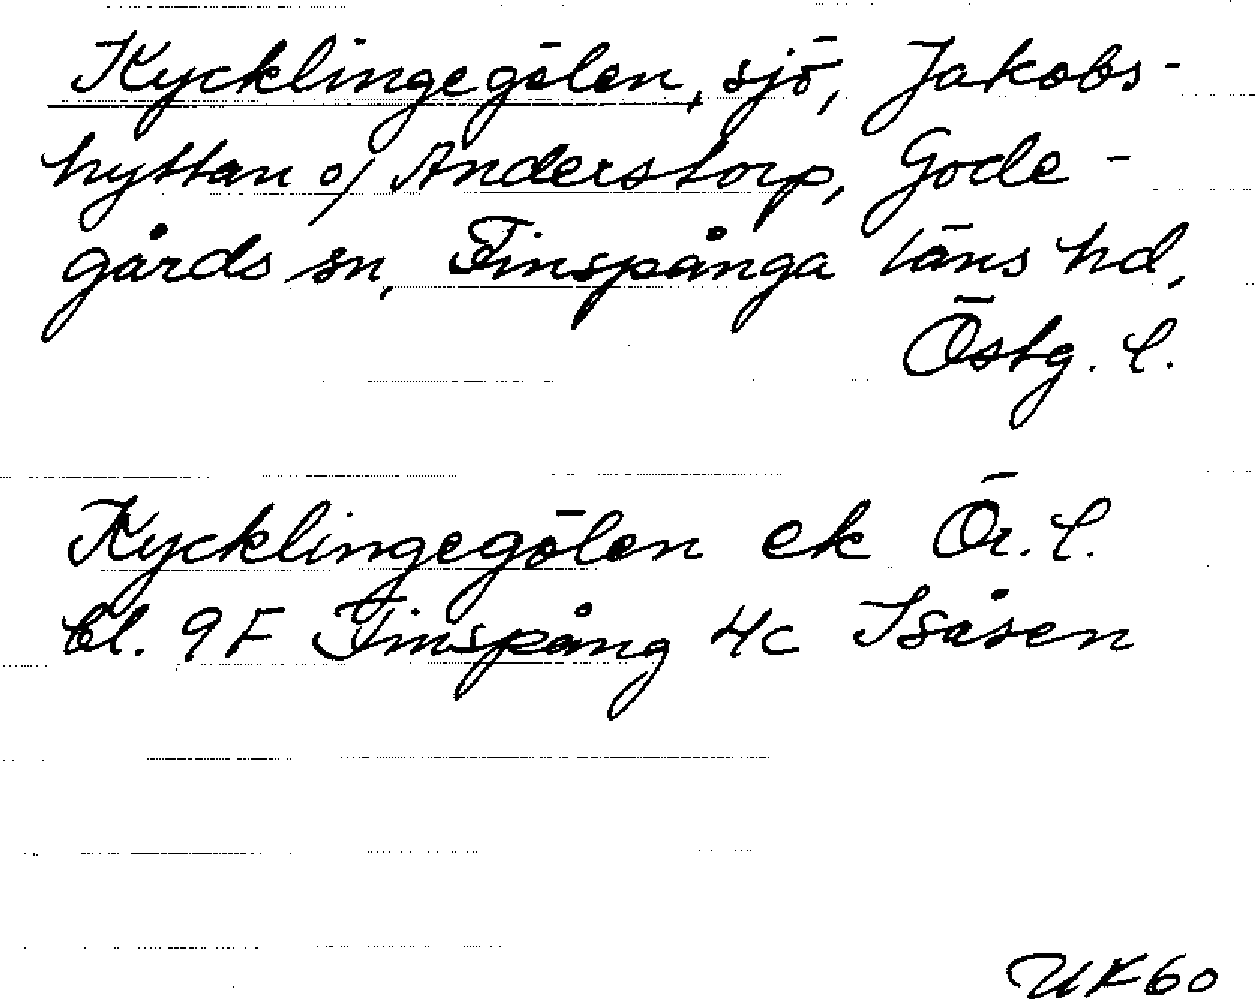 Kycklingegölen, sjö, Jakobs-
hyttan o/ Anderstorp, Gode-
gårds sn, Finspånga läns hd,
Östg. l.
Kycklingegölen ek Ör. l.
bl. 9F Finspång 4c Isåsen
UK60